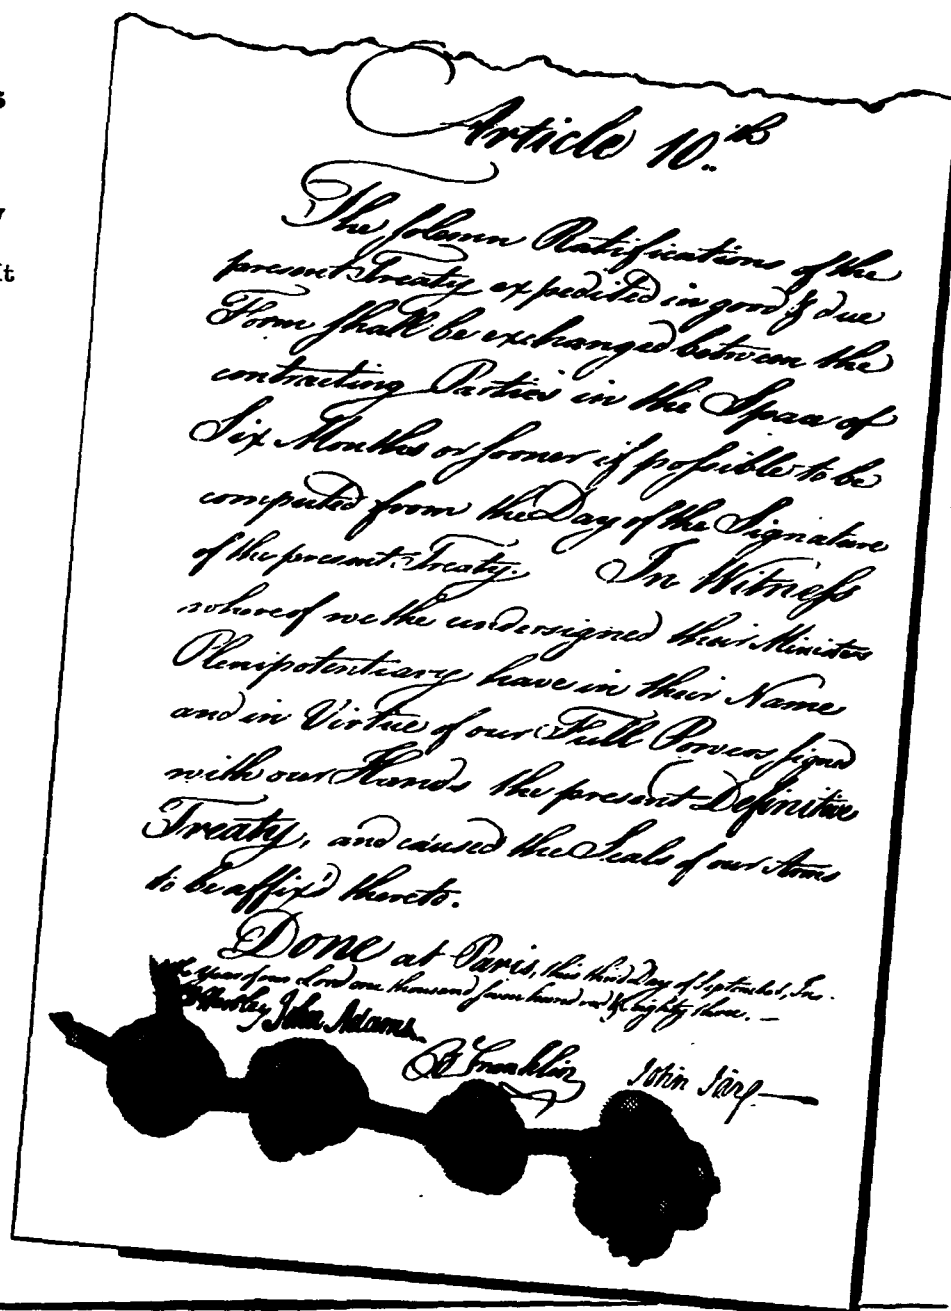 s
y
It
Article 10.th
The solemn Ratifications of the
present Treaty expedited in good & due
Form shall be exchanged between the
contracting Parties in the Space of
Six Months or sooner if possible to be
computed from the Day of the Signature
of the present Treaty. In Witness
whereof we the undersigned their Ministers
Plenipotentiary have in their Name
and in Virtue of our Full Powers signed
with our Hands the present Definitive
Treaty, and caused the Seals of our Arms
to be affix'd thereto.
Done at Paris, this third Day of September, In
the Year of our Lord one thousand seven hundred & eighty three. —
D Hartley John Adams
B Franklin John Jay —